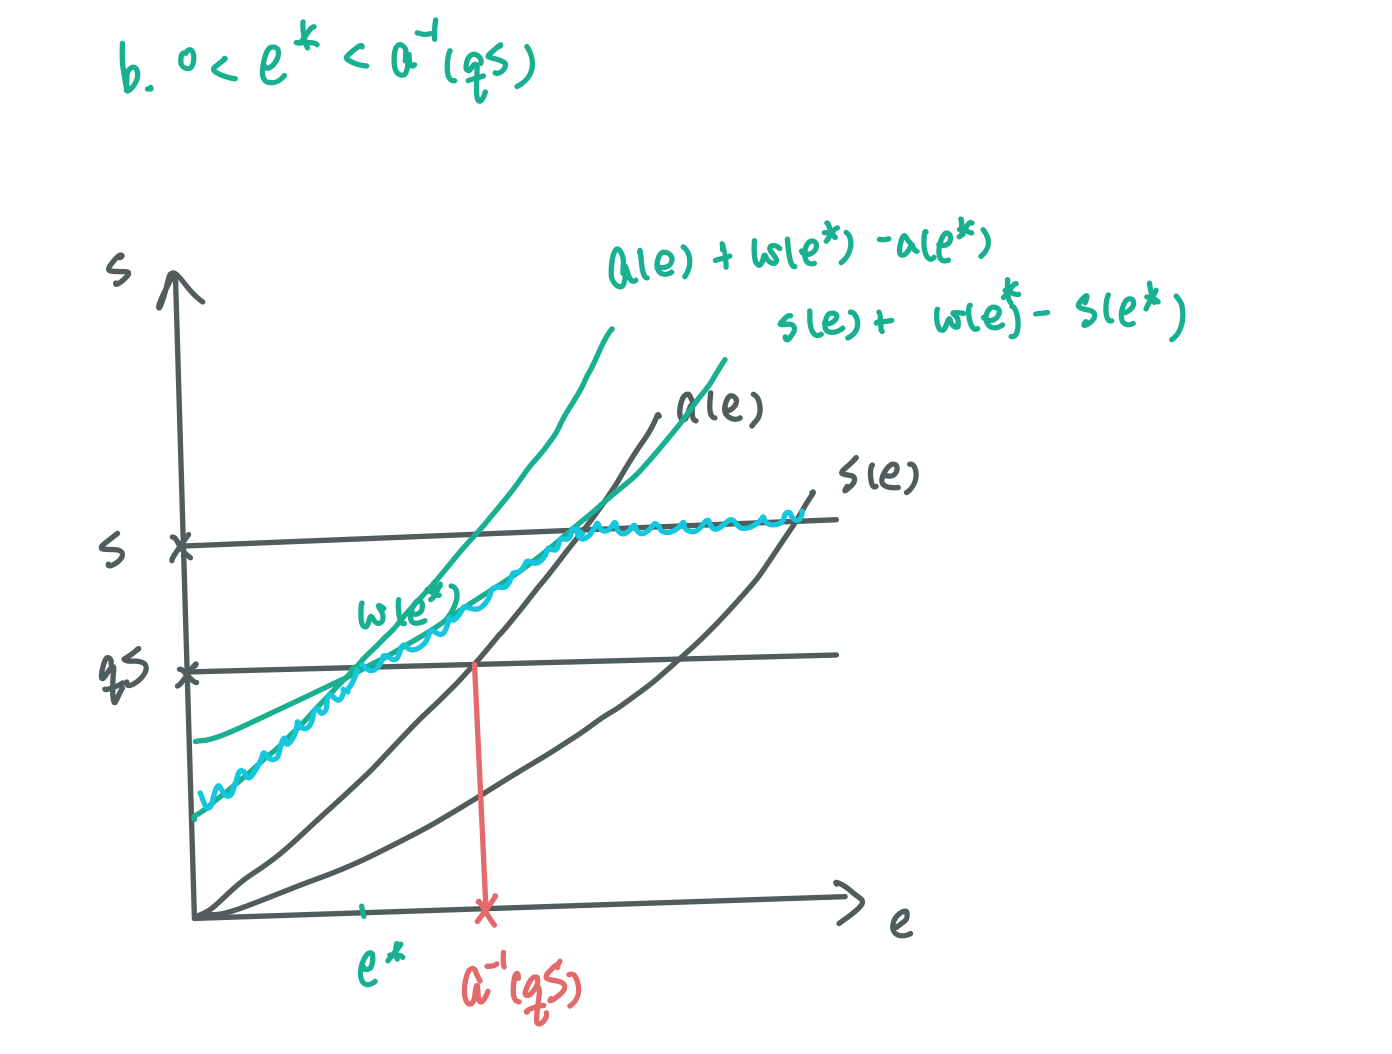 b. 0 < e* < a⁻¹(qS)
a(e) + w(e*) - a(e*)
s
s(e) + w(e*) - s(e*)
a(e)
s(e)
S
w(e*)
qS
e
e*
a⁻¹(qS)